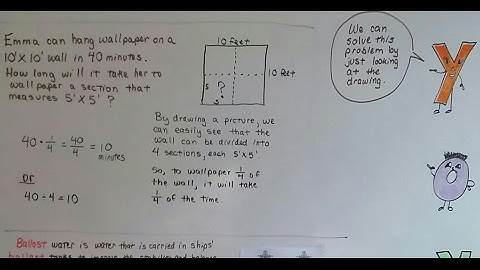 Emma can hang wallpaper on a
10' x 10' wall in 40 minutes.
How long will it take her to
wallpaper a section that
measures 5' x 5' ?
10 feet
10 feet
5
?
5
We can
solve this
problem by
just looking
at the
drawing.
40 · 1/4 = 40/4 = 10
minutes
or
40 ÷ 4 = 10
By drawing a picture, we
can easily see that the
wall can be divided into
4 sections, each 5' x 5'.
So, to wallpaper 1/4 of
the wall, it will take
1/4 of the time.
Ballast water is water that is carried in ships'
ballast tanks to improve the stability and balance